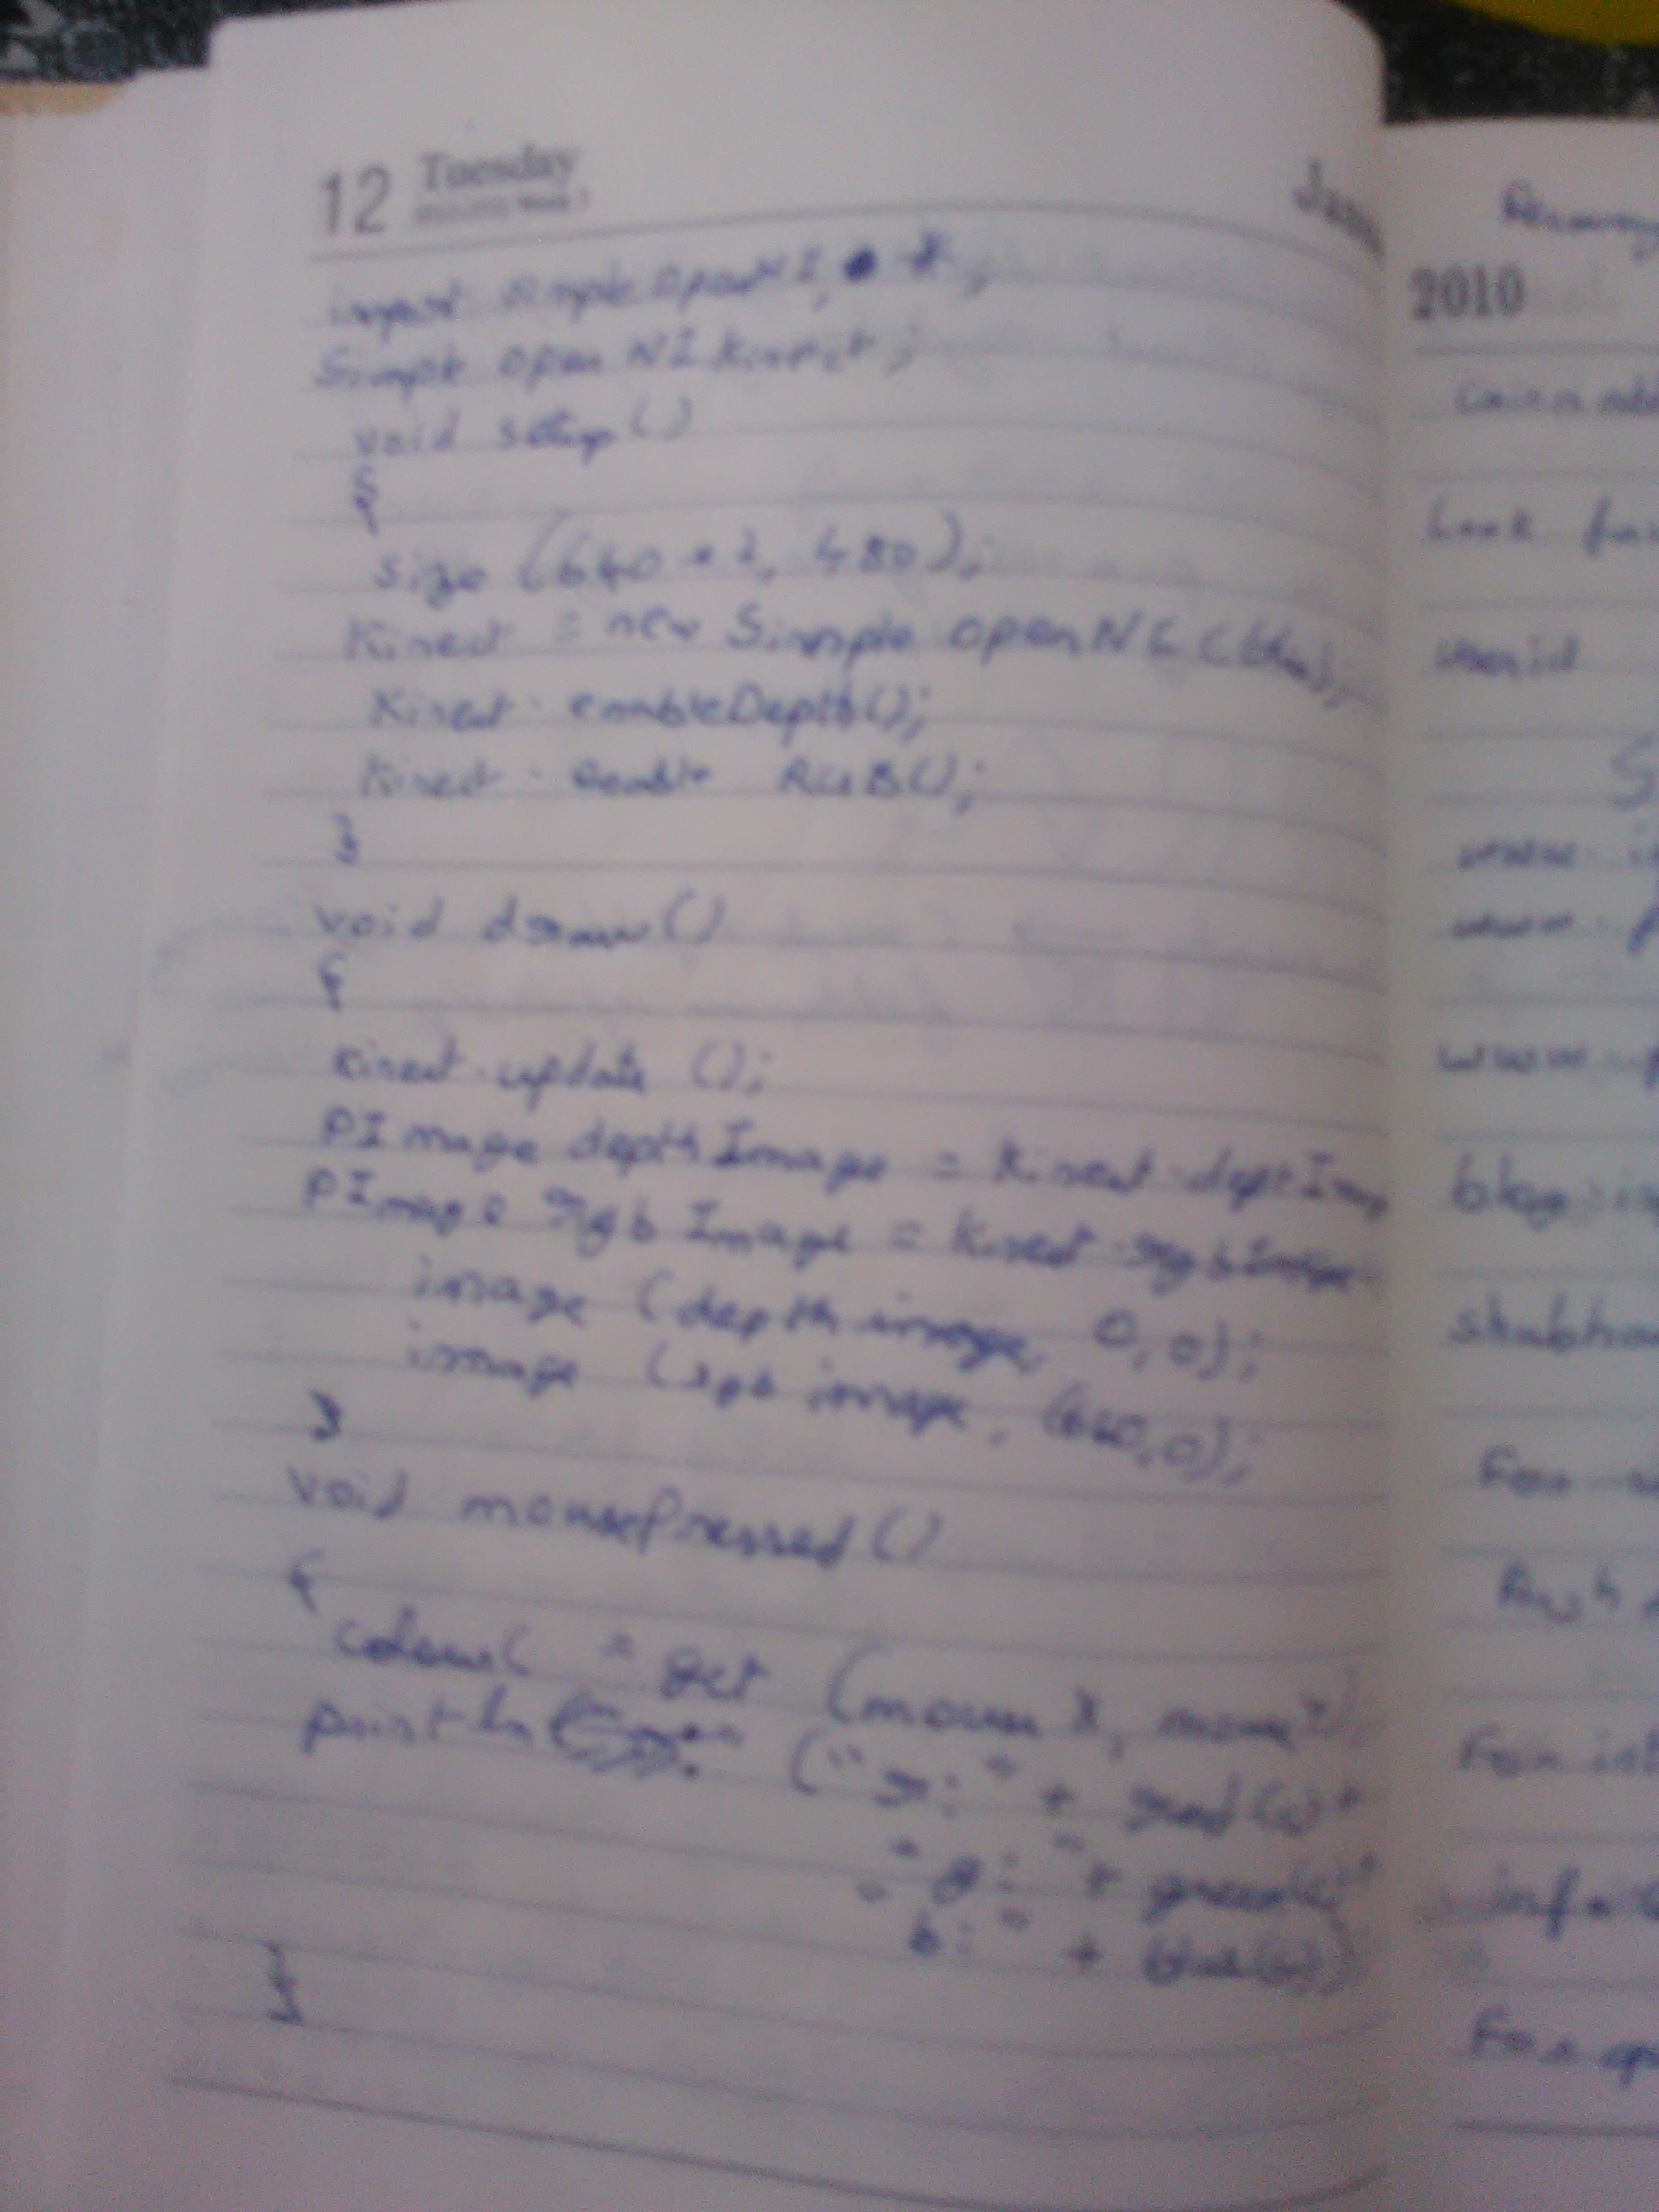 12 Tuesday
2010
import simple openNI, . * ;
Simple open NI kinect ;
void setup ()
{
size (640 * 2, 480);
Kinect = new Simple openNI (this);
Kinect . enableDepth();
Kinect . enable RGB();
}
void draw ()
{
Kinect . update ();
PImage depthImage = Kinect . deptIm
PImage rgb Image = Kinect . rgbImage
image (depth image, 0,0);
image (rgb image, (640,0);
}
void mousePressed ()
{
colour( = get (mouse X, mouseY)
println (" r: " + red (c) +
" g: " + green(c) +
b: " + blue(c))
}
Look for
userid
www.
www.
www.
blog.
For
For int
info
For